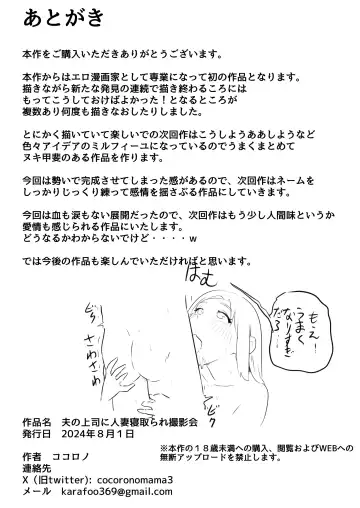 あとがき
本作をご購入いただきありがとうございます。
本作からはエロ漫画家として専業になって初の作品となります。
描きながら新たな発見の連続で描き終わるころには
もってこうしておけばよかった！となるところが
複数あり何度も描きなおしたりしました。
とにかく描いていて楽しいでの次回作はこうしようああしようなど
色々アイデアのミルフィーユになっているのでうまくまとめて
ヌキ甲斐のある作品を作ります。
今回は勢いで完成させてしまった感があるので、次回作はネームを
しっかりじっくり練って感情を揺さぶる作品にしていきます。
今回は血も涙もない展開だったので、次回作はもう少し人間味というか
愛情も感じられる作品にいたします。
どうなるかわからないでけど・・・・w
では今後の作品も楽しんでいただければと思います。
はむ
もえー！
うまく
なりすぎ
だろ…
さわさわ
ビク
作品名　夫の上司に人妻寝取られ撮影会
発行日　2024年８月１日
作者　ココロノ
連絡先
X（旧twitter): cocoronomama3
メール　karafoo369@gmail.com
※本作の１８歳未満への購入、閲覧およびWEBへの
無断アップロードを禁止します。